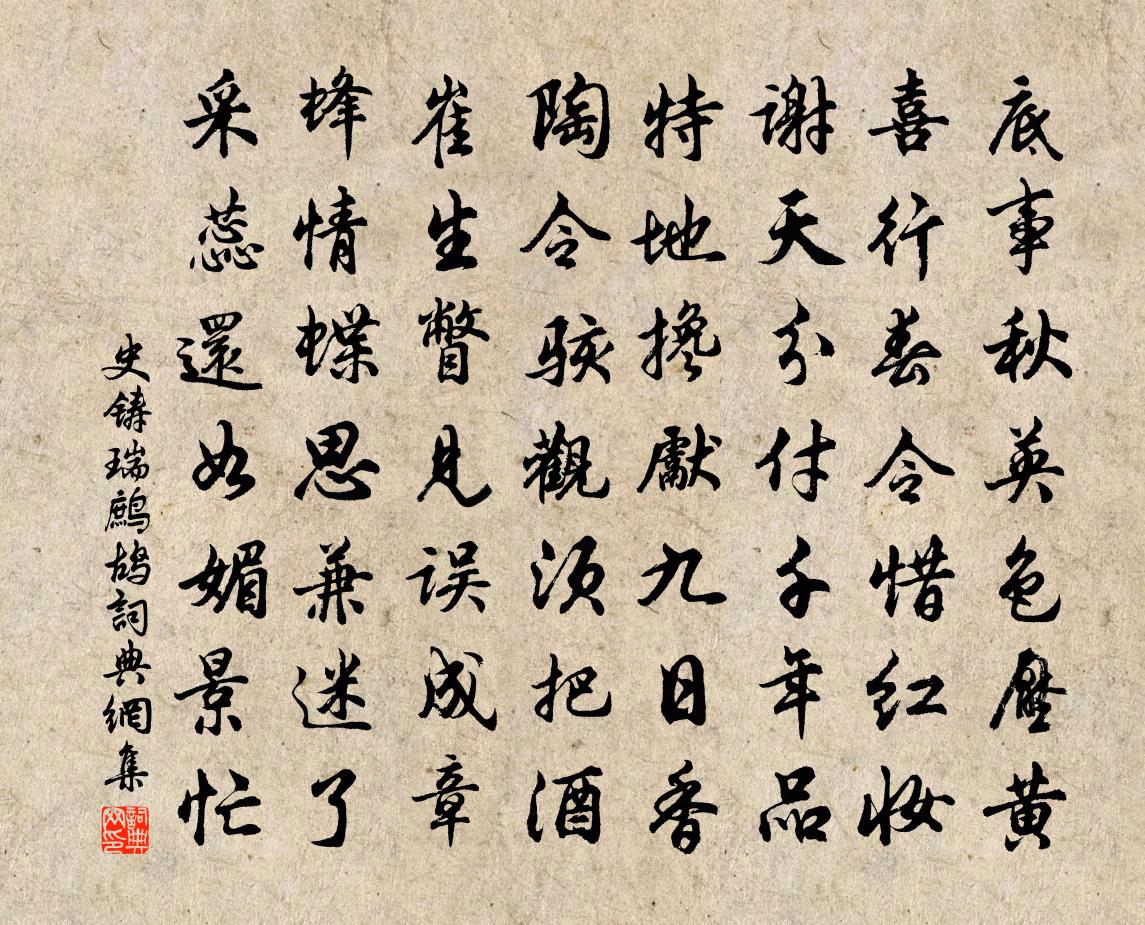 底事秋英色壓黃
喜行春令惜红妝
谢天分付千年品
特地搀獻九日香
陶令駭觀须把酒
崔生瞥見误成章
蜂情蝶思兼迷了
采蕊還如媚景忙
史铸瑞鷓鴣詞典網集
詞典網印